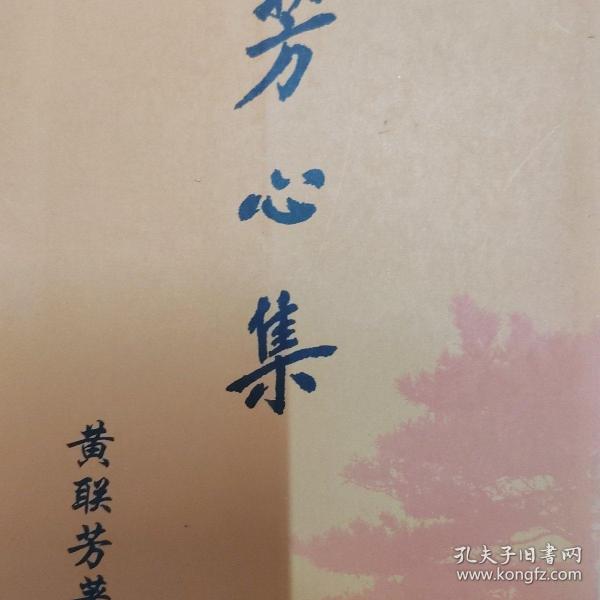 芳心集
黄联芳著
孔夫子旧书网
www.kongfz.com